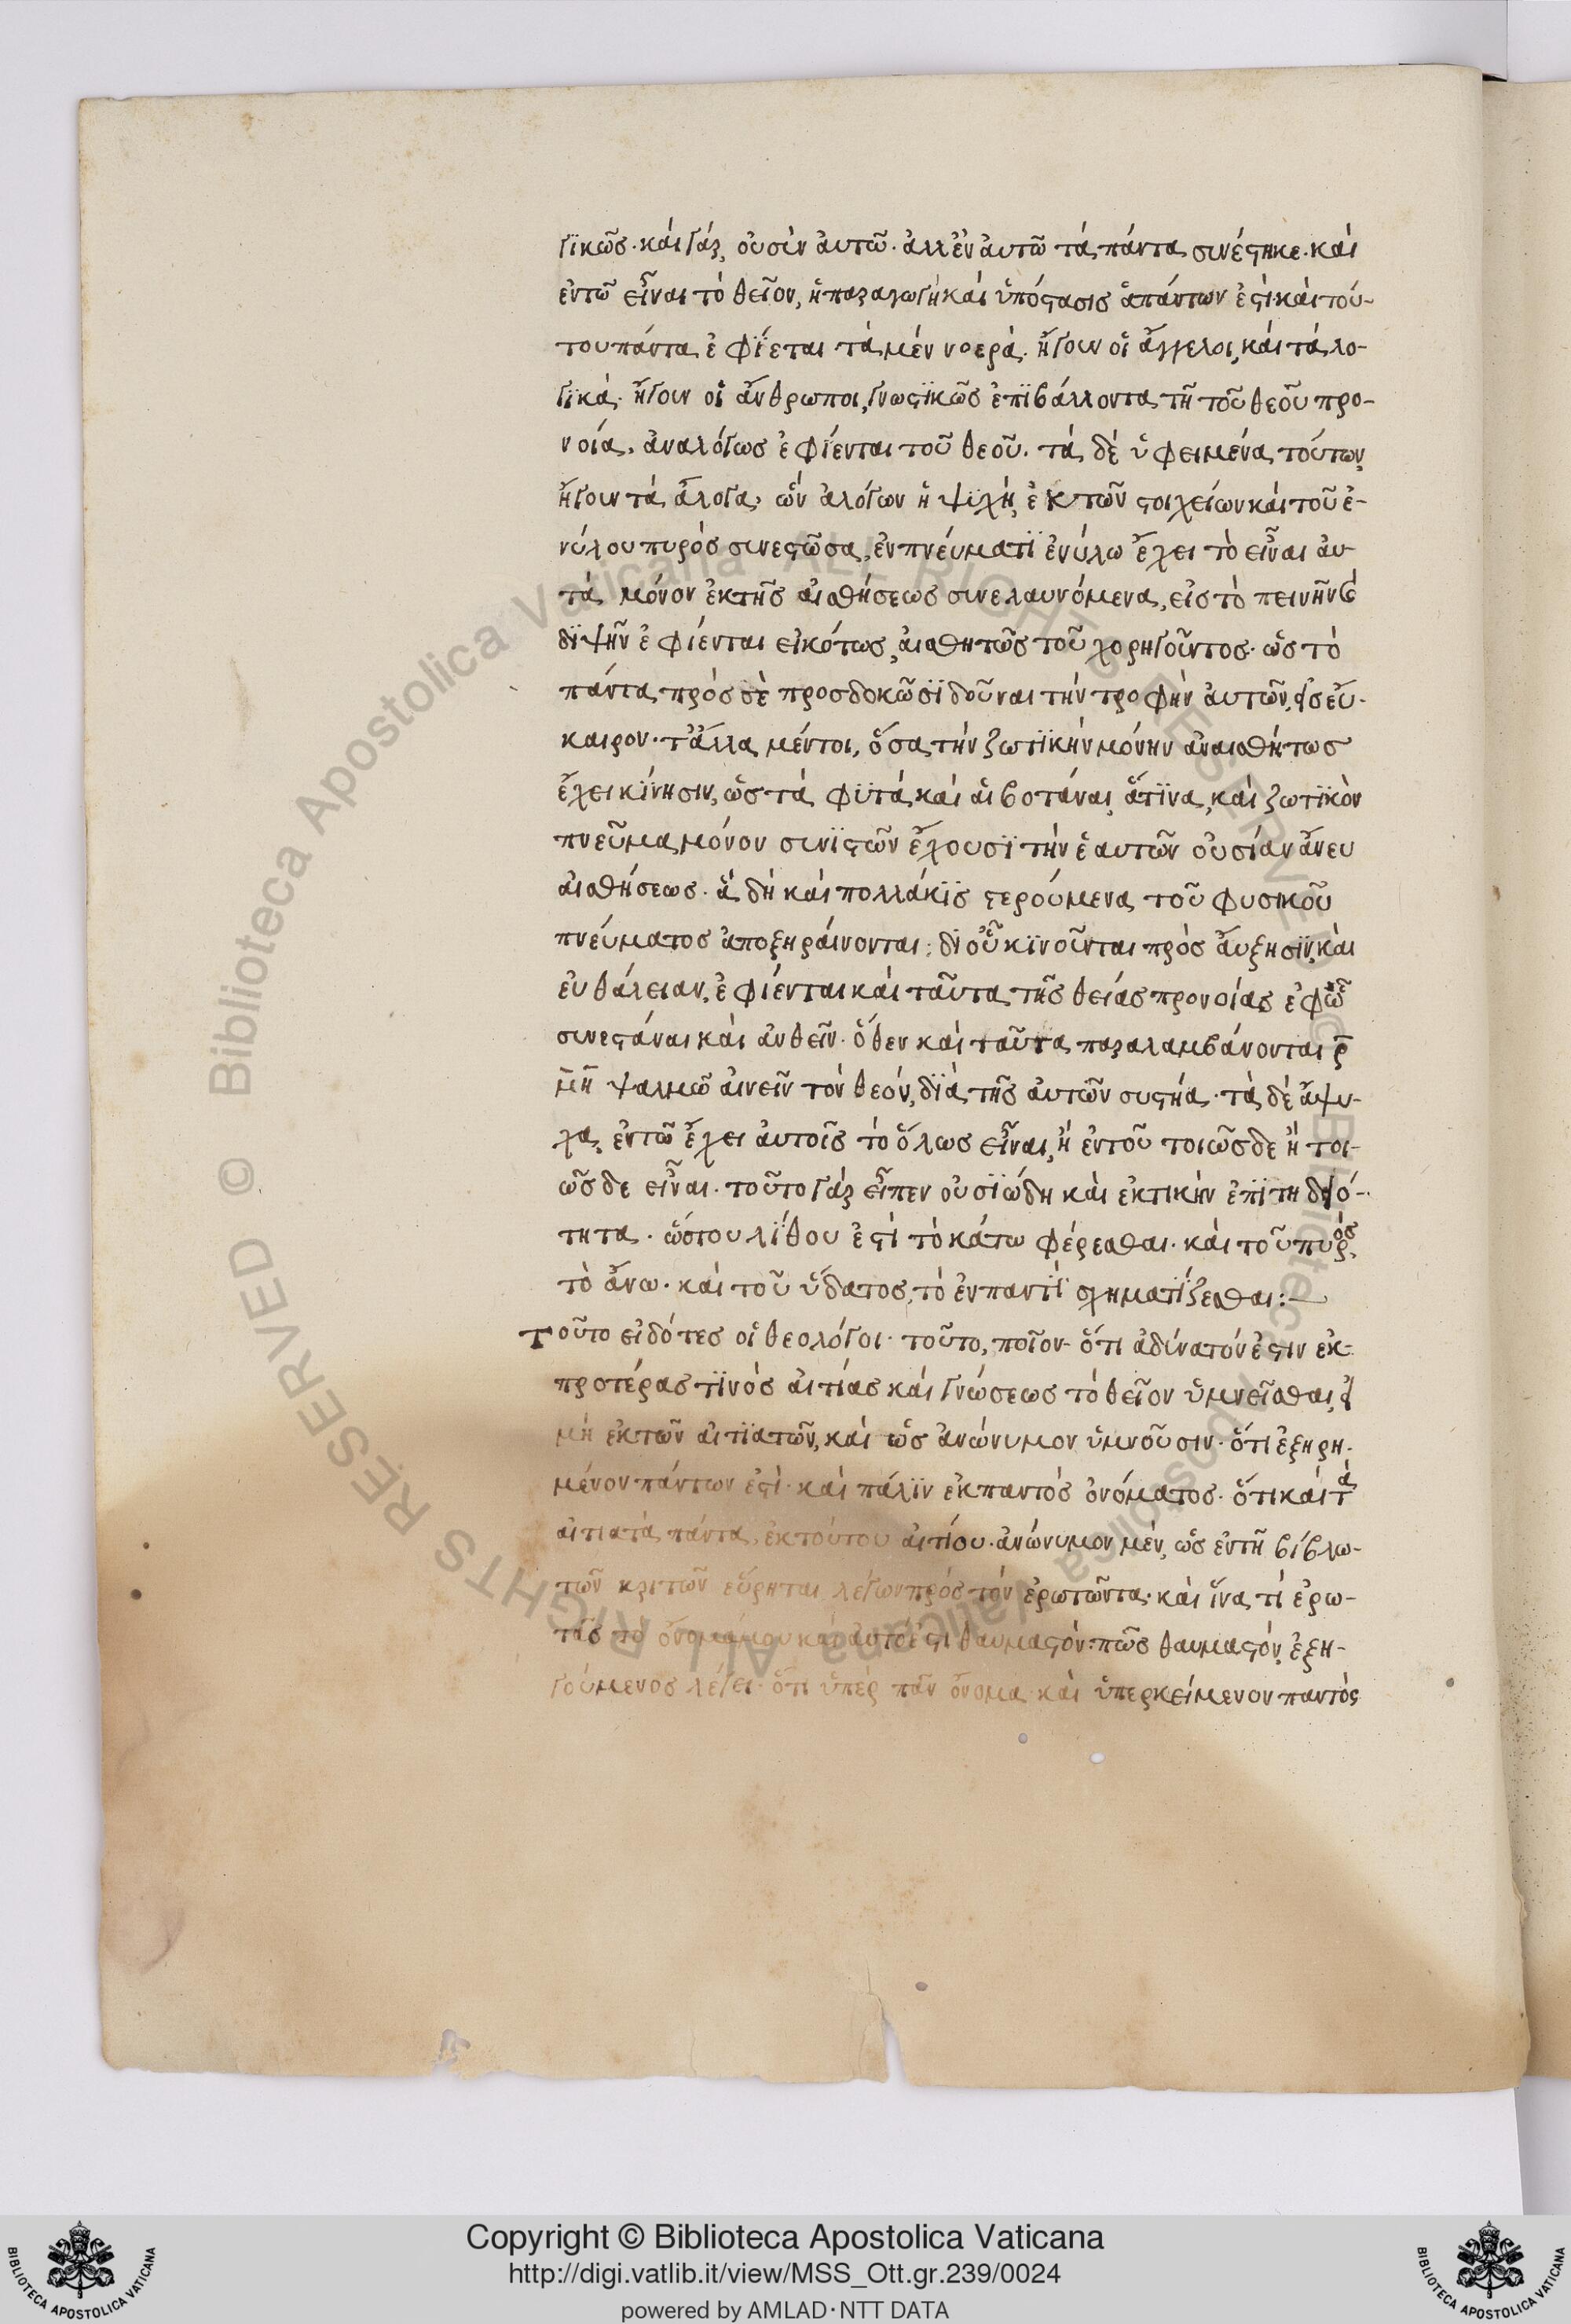 γϊκῶς· καὶ γὰρ, οὐσὶν ἀυτῶ· ἀλλἐν ἀυτῶ τὰ πάντα συνέστηκε· καὶ
ἐντῶ εἶναι τὸ θεῖον, ἡ παραγωγὴ καὶ ὑπόστασις ἁπάντων ἐστὶ· καὶ τού-
του πάντα ἐφίεται τὰ μὲν νοερὰ· ἤγουν οἱ ἄγγελοι, καὶ τὰ λο-
γϊκὰ· ἤγουν οἱ ἄνθρωποι, γνωστϊκῶς ἐπϊβάλλοντα τῆ τοῦ θεοῦ προ-
νοία, ἀναλόγως ἐφίενται τοῦ θεοῦ· τὰ δὲ ὑφειμένα τούτων,
ἤγουν τὰ ἄλογα· ὧν ἀλόγων ἡ ψϋχὴ, ἐκ τῶν στοιχείων καὶ τοῦ ἐ-
νύλου πυρὸς συνεστῶσα, ἐν πνεύματϊ ἐνύλω ἔχει τὸ εἶναι ἀυ
τὰ μόνον ἐκτῆς αἰσθήσεως συνελαυνόμενα, εἰς τὸ πεινῆν καὶ
δϊψῆν ἐφίενται εἰκότως, ἀισθητῶς τοῦ χορηγοῦντος· ὡς τὸ
πάντα πρός σὲ προσδοκῶσϊ δοῦναι τὴν τροφὴν ἀυτῶν, εἰς εὔ-
καιρον· τἆλλα μέντοι, ὅσα τὴν ζωτϊκὴν μόνην ἀναισθήτως
ἔχει κίνησιν, ὡς τὰ φϋτὰ καὶ ἁι βοτάναι, ἅτϊνα, καὶ ζωτϊκὸν
πνεῦμα μόνον συνϊστῶν ἔχουσϊ τὴν ἑαυτῶν οὐσίαν ἄνευ
ἀισθήσεως· ἃ δὴ καὶ πολλάκϊς στερούμενα τοῦ φυσικοῦ
πνεύματος ἀποξηράινονται: δϊ οὗ κϊνοῦνται πρὸς ἄυξησϊν, καὶ
ἐυθάλειαν, ἐφίενται καὶ ταῦτα τῆς θείας προνοίας ἐφ ὧ
συνεστάναι καὶ ἀνθεῖν· ὅθεν καὶ ταῦτα παραλαμβάνονται ρ̄
μ̄η̄ ψαλμῶ ἀινεῖν τὸν θεόν, δϊὰ τῆς ἀυτῶν συστηά· τὰ δὲ ἄψυ-
χα, ἐντῶ ἔχει ἀυτοῖς τὸ ὅλως εἶναι, ἢ ἐντοῦ τοιῶσδε ἢ τοι-
ῶσδε εἶναι· τοῦτο γὰρ εἶπεν οὐσϊώδη καὶ ἑκτικὴν ἐπϊτηδειό-
τητα· ὥστου λίθου ἐστὶ τὸ κάτω φέρεσθαι· καὶ τοῦ πυρὸς,
τὸ ἄνω· καὶ τοῦ ὕδατος, τὸ ἐν παντὶ σχηματίζεσθαι:
Τοῦτο εἰδότες οἱ θεολόγοι· τοῦτο, ποῖον· ὅτι ἀδύνατόν ἐστιν ἐκ
προτέρας τϊνὸς αἰτίας καὶ γνώσεως τὸ θεῖον ὑμνεῖσθαι, εἰ
μὴ ἐκτῶν αἰτϊατῶν, καὶ ὡς ἀνώνυμον ὑμνοῦσιν· ὅτι ἐξηρη-
μένον πάντων ἐστὶ· καὶ πάλϊν ἐκ παντὸς ὀνόματος· ὅτι καὶ τὰ
αἰτιατὰ πάντα, ἐκ τούτου ἀιτίου· ἀνώνυμον μὲν, ὡς ἐντῆ βίβλω-
τῶν κριτῶν εὕρηται λέγων πρὸς τὸν ἐρωτῶντα· καὶ ἵνα τί ἐρω-
τᾶς τὸ ὄνομά μου καὶ ἀυτό ἐστι θαυμαστόν: πῶς θαυμαστόν, ἐξη-
γούμενος λέγει· ὅτι ὑπὲρ πᾶν ὄνομα καὶ ὑπερκείμενον παντὸς
Copyright © Biblioteca Apostolica Vaticana
http://digi.vatlib.it/view/MSS_Ott.gr.239/0024
powered by AMLAD·NTT DATA
BIBLIOTECA APOSTOLICA VATICANA
BIBLIOTECA APOSTOLICA VATICANA
© Biblioteca Apostolica Vaticana ALL RIGHTS RESERVED © Biblioteca Apostolica Vaticana ALL RIGHTS RESERVED